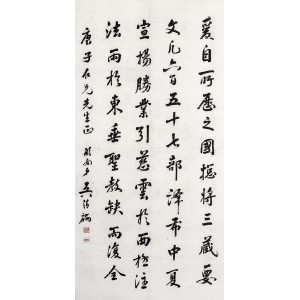 爰自所歷之國揔將三藏要
文凡六百五十七部譯布中夏
宣揚勝業引慈雲於西極注
法雨於東垂聖教缺而復全
庚子 先生正